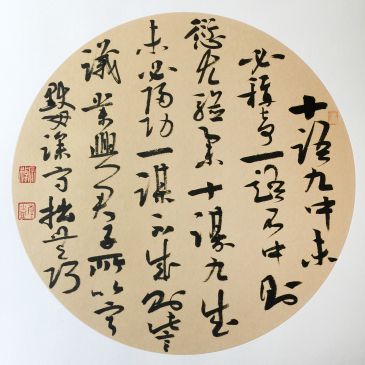 十語九中未
必稱奇一語不中則
愆尤駢集十謀九成
未必歸功一謀不成則訾
議叢興君子所以寧
默毋躁寧拙毋巧